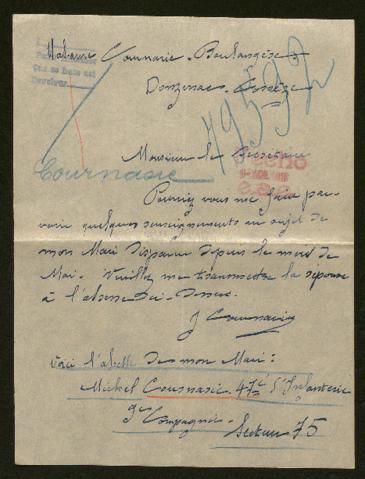 Madame Cournarie - Boulangère
Donzenac - Corrèze
79592
Cournarie
Monsieur le
Pourriez vous me faire par-
venir quelques renseignements au sujet de
mon Mari disparu depuis le mois de
Mai. Veuillez me transmettre la réponse
à l'adresse ci-dessus.
J Cournarie
Voici l'adresse de mon Mari:
Michel Cournarie 47e d'Infanterie
9e Compagnie
Secteur 75